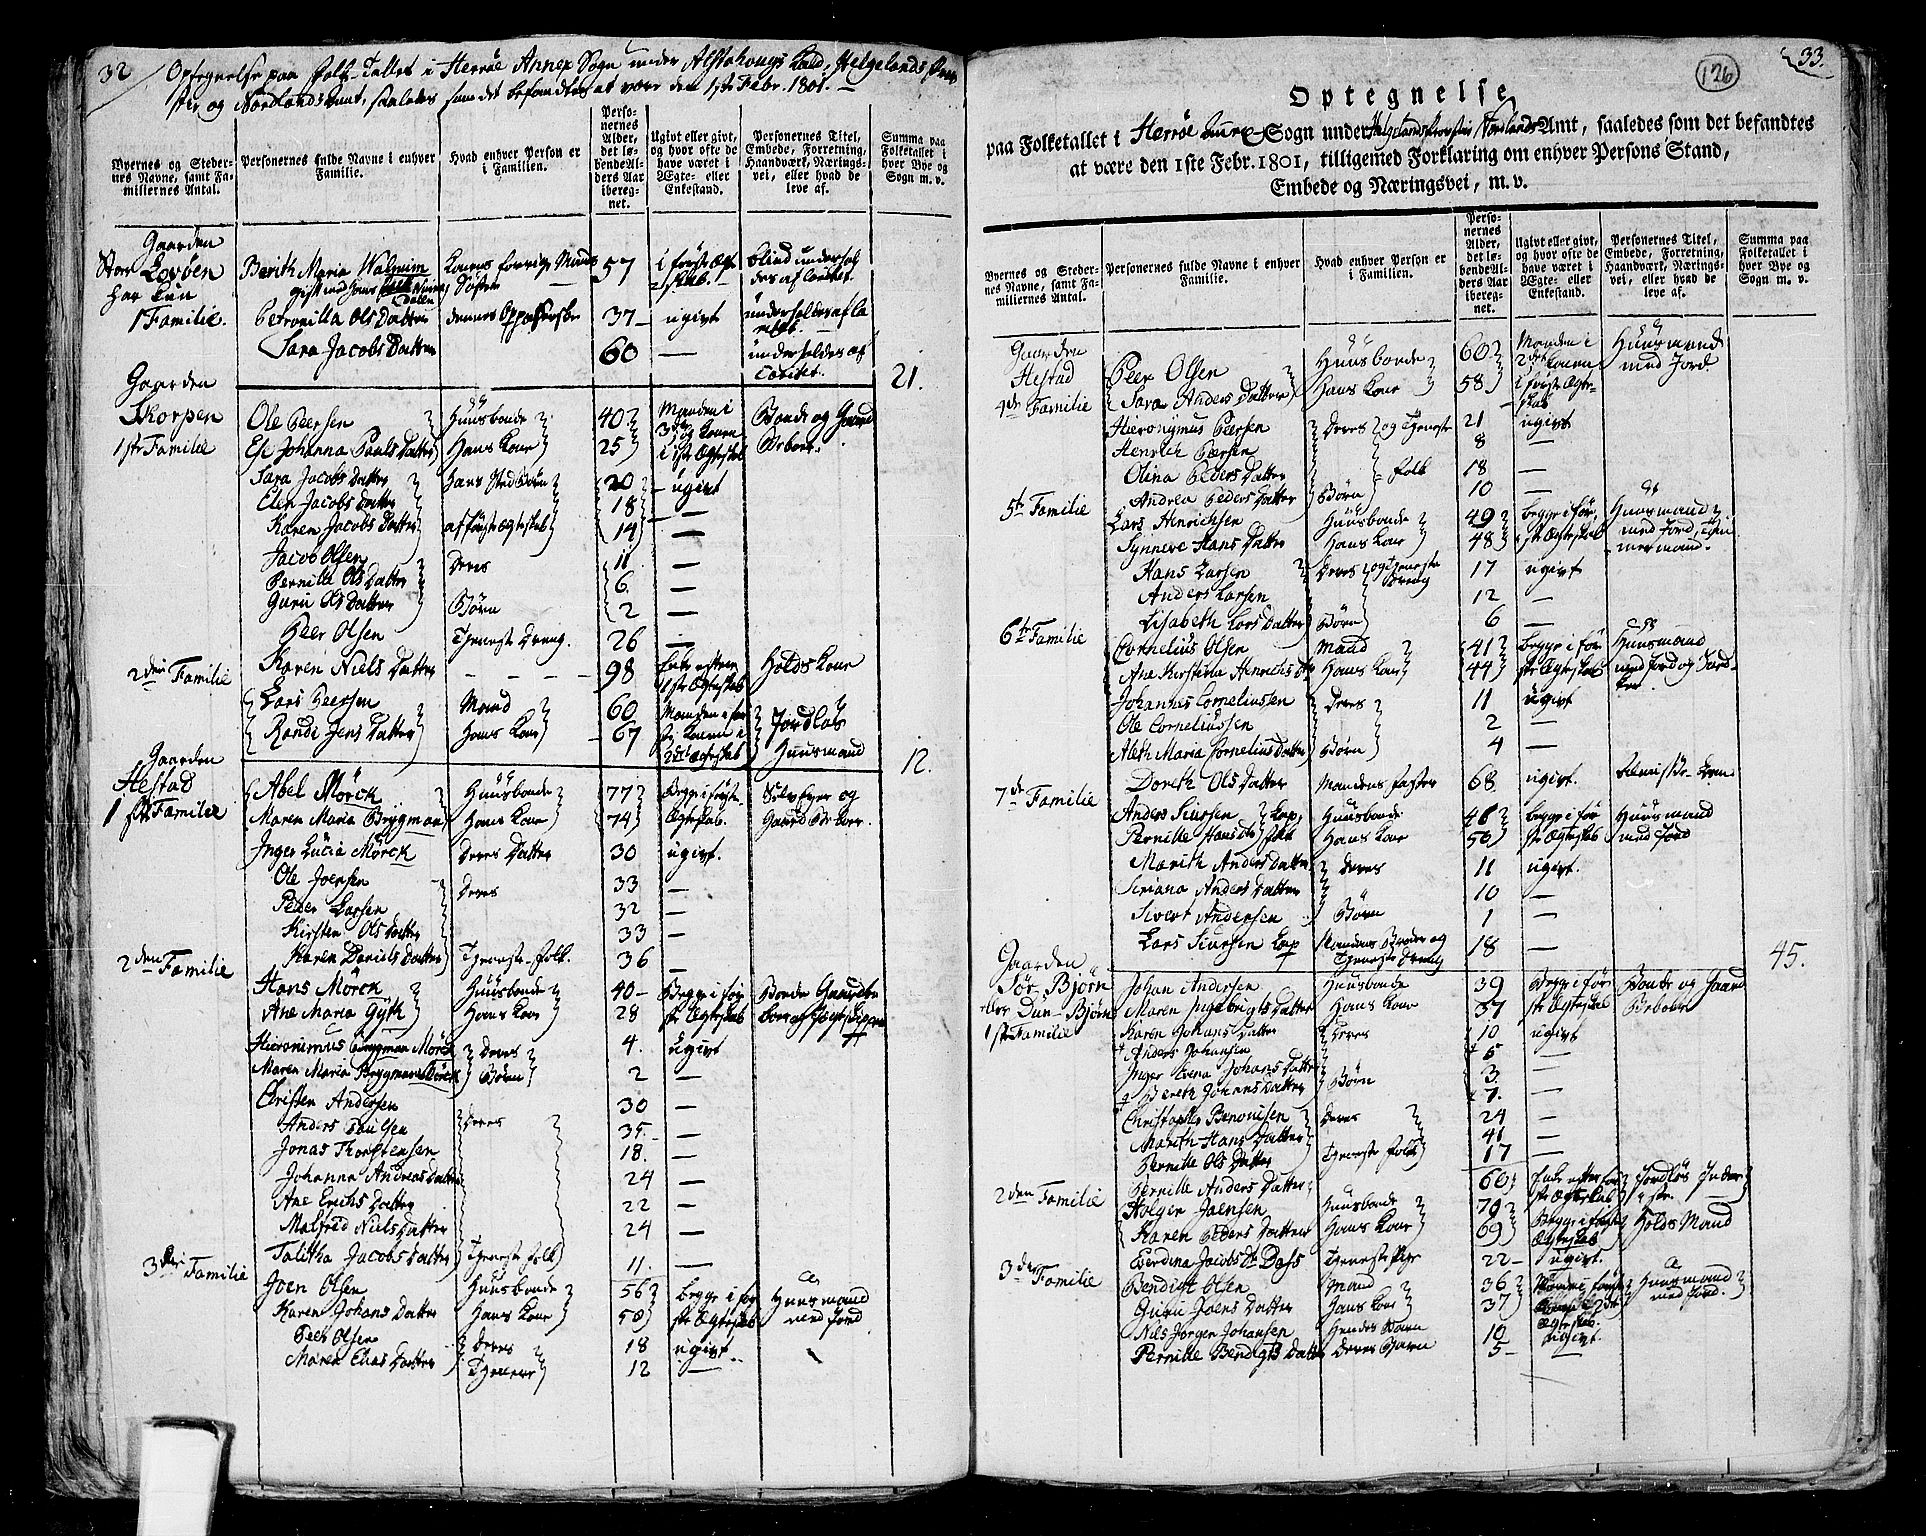 32
Optegnelse paa Folk-Tallet i Herrøe Annex Sogn under Alstahougs Kald, Helgelands
og Nordlands Amt, saaledes som det befandtes at være den 1ste Febr. 1801.
Byernes og Stedernes Navne, samt Familiernes Antal.
Personernes fulde Navne i enhver Familie.
Hvad enhver Person er i Familien.
Personernes Alder, det løbende Alders Aar iberegnet.
Ugivt eller givt, og hvor ofte de have været i Ægte- eller Enkestand.
Personernes Titel, Embede, Forretning, Haandværk, Næringsvei, eller hvad de leve af.
Summa paa Folketallet i hver Bye og Sogn m. v.
Gaarden
Har kun
1 Familie.
Berith Maria Walnum 57 i første Ægteskab. blind
gift med Hans
Petronilla Ols Datter 37 ugivt
Sara Jacobs Datter 60 —
21.
Gaarden
Skorpen
1ste Familie
Ole Peersen Huusbonde 40 Bonde og Gaard
Else Johanna Pauls Datter Hans Kone 25 i 1ste Ægteskab Beboer.
Sara Jacobs Datter Hans Sted Børn 20 ugivt
Elen Jacobs Datter 18 —
Karen Jacobs Datter af første Ægteskab 14 —
Jacob Olsen Deres 11 —
Pernille Ols Datter 6 —
Guru Ols Datter Børn 2 —
Peer Olsen Tjeneste Dreng. 26 —
2den Familie
Karen Niels Datter 98 1ste Ægteskab
Lars Peersen Mand 60 Jordløs
Randi Jens Datter Hans Kone 67 2det Ægteskab Huusmand
12.
Gaarden
Hestad
1ste Familie
Abel Mörck Huusbonde 77 Begge i første
Maren Maria Brygman Hans Kone 74 Ægteskab. Gaard Beboer.
Inger Lucia Mörck Deres Datter 30 ugivt.
Ole Joensen Deres 33 —
Peder Larsen 32 —
Kirsten Ols Datter 33 —
Karen Daniels Datter Tjeneste-Folk. 36 —
2den Familie
Hans Mörck Huusbonde 40 Begge i før-
Ane Maria Gyth Hans Kone 28 ste Ægteskab
Hieronimus Brygman Mörck Deres 4. ugivt
Maren Maria Brygman Mörck Børn 2 —
Christen Andersen 30 —
Anders Poulsen Deres 35 —
Jonas Thorstensen 18. —
Johanna Andreas Datter 24 —
Ane Erichs Datter 22 —
Malfred Niels Datter 24 —
Talitha Jacobs Datter Tjeneste Folk 11. —
3die Familie
Joen Olsen Huusbonde 56 begge i før Huusmand
Karen Johans Datter Hans Kone 58 ste Ægteskab med Jord.
Peer Olsen Deres 18 ugivt
Maren Elias Datter Tjenere 12 —
126
33.
Optegnelse
paa Folketallet i Herrøe Annex Sogn under Helgelands Provstie Nordlands Amt, saaledes som det befandtes
at være den 1ste Febr. 1801, tilligemed Forklaring om enhver Persons Stand,
Embede og Næringsvei, m. v.
Byernes og Stedernes Navne, samt Familiernes Antal.
Personernes fulde Navne i enhver Familie.
Hvad enhver Person er i Familien.
Personernes Alder, det løbende Alders Aar iberegnet.
Ugivt eller givt, og hvor ofte de have været i Ægte- eller Enkestand.
Personernes Titel, Embede, Forretning, Haandværk, Næringsvei, eller hvad de leve af.
Summa paa Folketallet i hver Bye og Sogn m. v.
Gaarden
Hestad
4de Familie
Peer Olsen Huusbonde 60 Manden i 2det Konen Huusmand
Sara Anders Datter Hans Kone 58 i første Ægteskab med Jord
Hieronymus Peersen Deres og Tjeneste 21 ugivt
Henrich Peersen 8 —
Olina Peders Datter Folk 18 —
Andrea Peders Datter Børn 10 —
5te Familie
Lars Henrichsen Huusbonde 49 begge i før- Huusmand
Synneve Hans Datter Hans Kone 48 ste Ægteskab med Jord, Timmermand.
Hans Larsen Deres og Tjeneste Dreng 17 ugivt
Anders Larsen 12 —
Lisabeth Lars Datter Børn 6 —
6te Familie
Cornelius Olsen Mand 41 begge i før Huusmand
Ane Kirstina Henrichs Dr Hans Kone 44 ste Ægteskab med Jord og
Johannes Corneliussen Deres 11 ugivt
Ole Corneliussen 2 —
Aleth Maria Cornelius Datter Børn 4 —
Doreth Ols Datter Mandens Faster 68 ugivt.
7de Familie
Anders Siursen Lap Huusbonde 48 begge i før Huusmand
Pernille Hans Dtr Hans Kone 50 ste Ægteskab med Jord
Marith Anders Datter Deres 11 ugivt.
Siriana Anders Datter 10 —
Sivert Andersen Børn 1 —
Lars Siursen Lap Mandens Broder og Tjeneste Dreng 18 —
45.
Gaarden
Sør Bjørn
eller Dun-Bjørn
1ste Familie
Johan Andersen Huusbonde 39 Begge i før Bonde og Gaard
Maren Ingebrigts Datter Hans Kone 37 ste Ægteskab Beboer
Karen Johans Datter Deres 10 ugivt
Anders Johansen 5 —
Inger Evena Johans Datter 3. —
Bereth Johans Datter Børn 7. —
Christopher Benonisen Deres 24 —
Mareth Hans Datter 41 —
Pernille Ols Datter Tjeneste Folk 17 —
Pernille Anders Datter 60 Enke efter før ste Ægteskab Jordløs Inderste.
2den Familie
Holger Joensen Huusbonde 79 Begge i første
Karen Peders Datter Hans Kone 69 Ægteskab Holds Mand
Everdina Jacobs Dr Dass Tjeneste Pige 22 ugivt.
3die Familie
Bendigt Olsen Mand 36 Huusmand
Guru Joens Datter Hans Kone 37 Ægteskab. med Jord.
Nils Jørgen Johansen Hendes Barn 10 ugivt.
Pernille Bendigts Datter Deres Barn 5 —